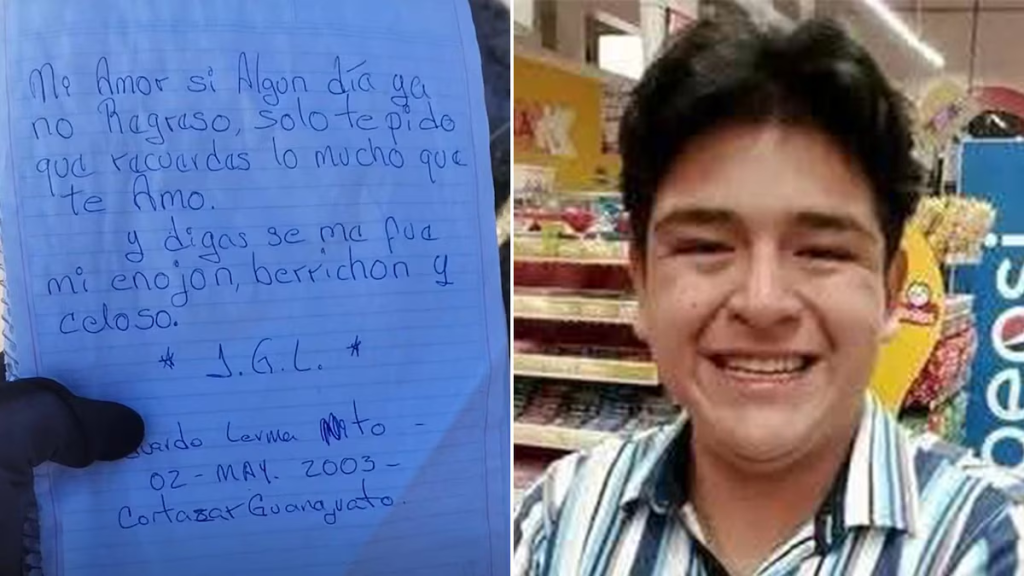 Mi Amor si Algun día ya
no Regreso, solo te pido
que recuerdas lo mucho que
te Amo.
y digas se me fue
mi enojon, berrichon y
celoso.
* J.G.L. *
Lerma
02 - MAY. 2003 -
Cortazar Guanajuato.